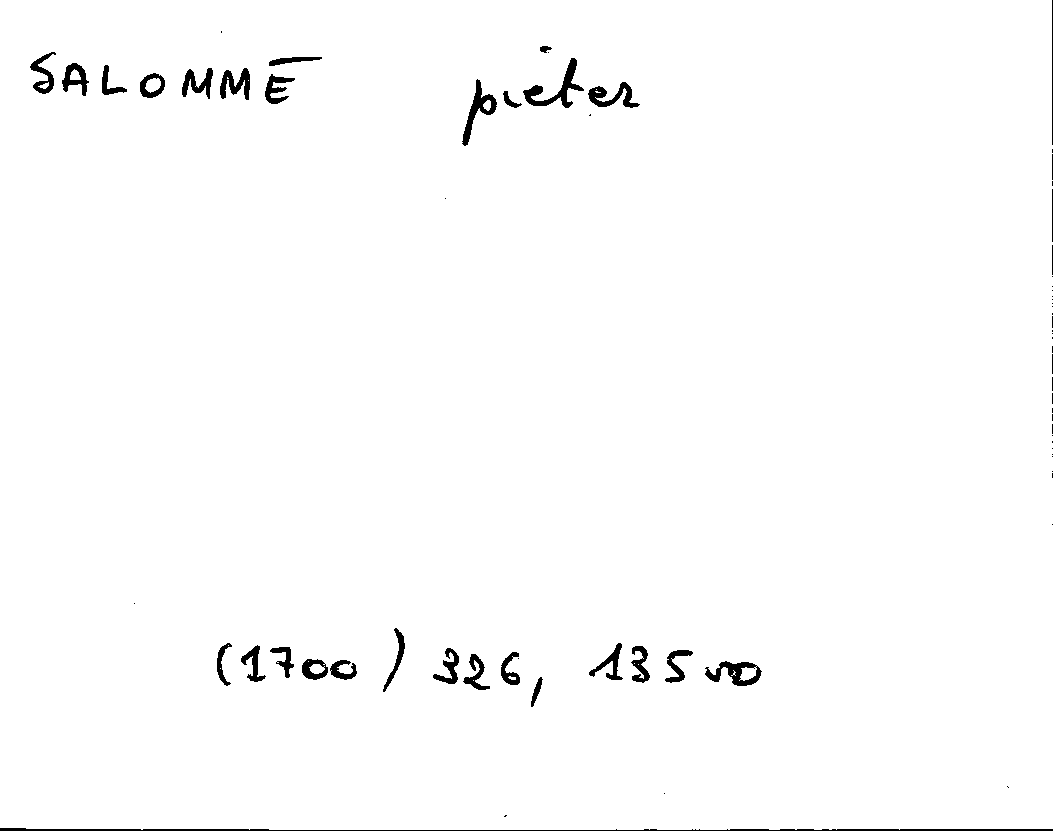 SALOMME pieter
(1700) 326, 135 vo